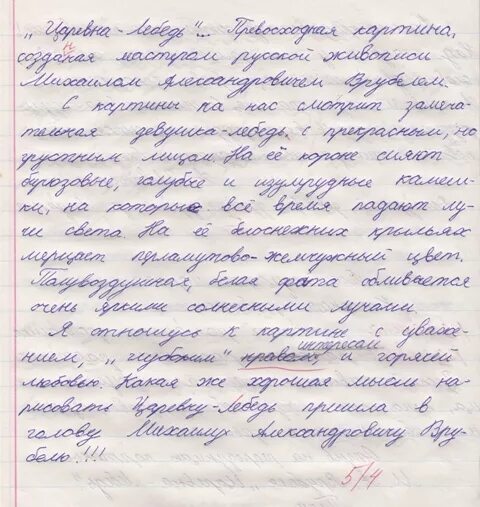 „Царевна-Лебедь"- Превосходная картина,
созданая мастером русской живописи
н
Михаилом Александровичем Врубелем.
С картины на нас смотрит замеча-
тельная девушка-лебедь с прекрасным, но
грустным лицом. На её короне сияют
бирюзовые, голубые и изумрудные камеш-
ки, на которые всё время падают лу-
чи света. На её белоснежных крыльях
мерцает перламутово-жемчужный цвет.
Полувоздушная, белая фата обливается
очень яркими солнесными лучами.
Я отношусь к картине с уваже-
интересом
нием, „глубоким" нравом, и горячей
любовью. Какая же хорошая мысль на-
рисовать Царевну-Лебедь пришла в
голову Михаилу Александровичу Вру-
белю!!!
5/4